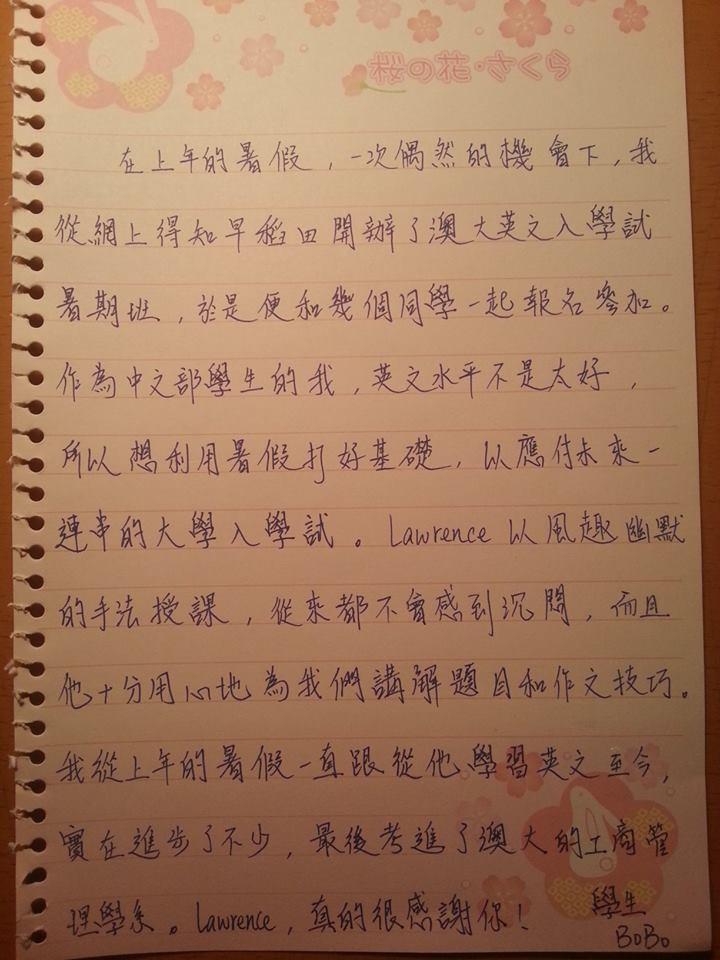 桜の花・さくら
在上年的暑假，一次偶然的機會下，我
從網上得知早稻田開辦了澳大英文入學試
暑期班，於是便和幾個同學一起報名參加。
作為中文部學生的我，英文水平不是太好，
所以想利用暑假打好基礎，以應付未來一
連串的大學入學試。Lawrence 以風趣幽默
的手法授課，從來都不會感到沉悶，而且
他十分用心地為我們講解題目和作文技巧。
我從上年的暑假一直跟從他學習英文至今，
實在進步了不少，最後考進了澳大的工商管
理學系。Lawrence，真的很感謝你！
學生
BoBo